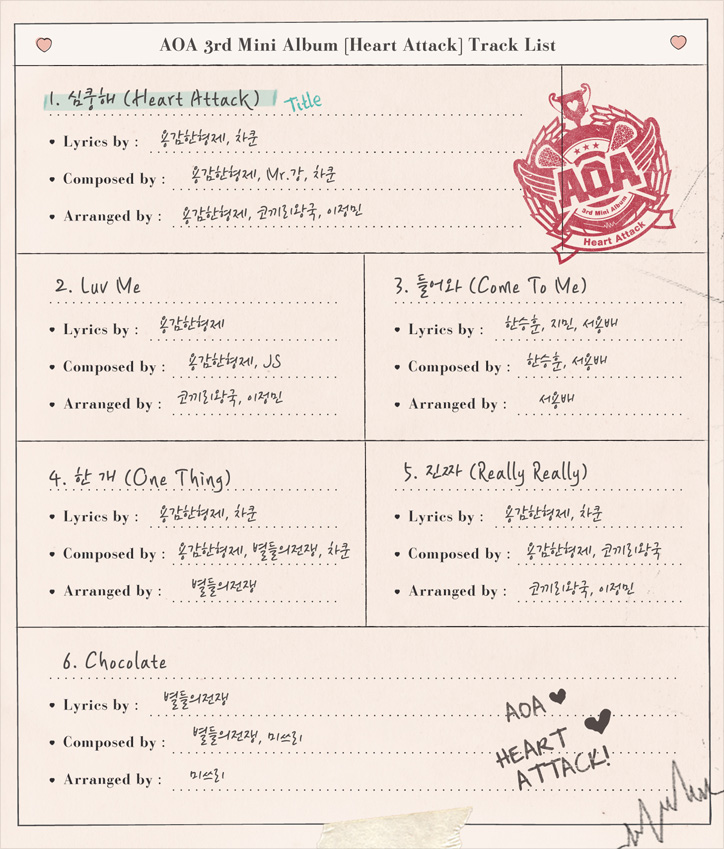 AOA 3rd Mini Album [Heart Attack] Track List
1. 심쿵해 (Heart Attack) Title
Lyrics by : 용감한형제, 차쿤
Composed by : 용감한형제, Mr.강, 차쿤
Arranged by : 용감한형제, 코끼리왕국, 이정민
AOA
3rd Mini Album
Heart Attack
2. Luv Me
Lyrics by : 용감한형제
Composed by : 용감한형제, JS
Arranged by : 코끼리왕국, 이정민
3. 들어와 (Come To Me)
Lyrics by : 한승훈, 지민, 서용배
Composed by : 한승훈, 서용배
Arranged by : 서용배
4. 한 개 (One Thing)
Lyrics by : 용감한형제, 차쿤
Composed by : 용감한형제, 별들의전쟁, 차쿤
Arranged by : 별들의전쟁
5. 진짜 (Really Really)
Lyrics by : 용감한형제, 차쿤
Composed by : 용감한형제, 코끼리왕국
Arranged by : 코끼리왕국, 이정민
6. Chocolate
Lyrics by : 별들의전쟁
Composed by : 별들의전쟁, 미쓰리
Arranged by : 미쓰리
AOA
HEART
ATTACK!